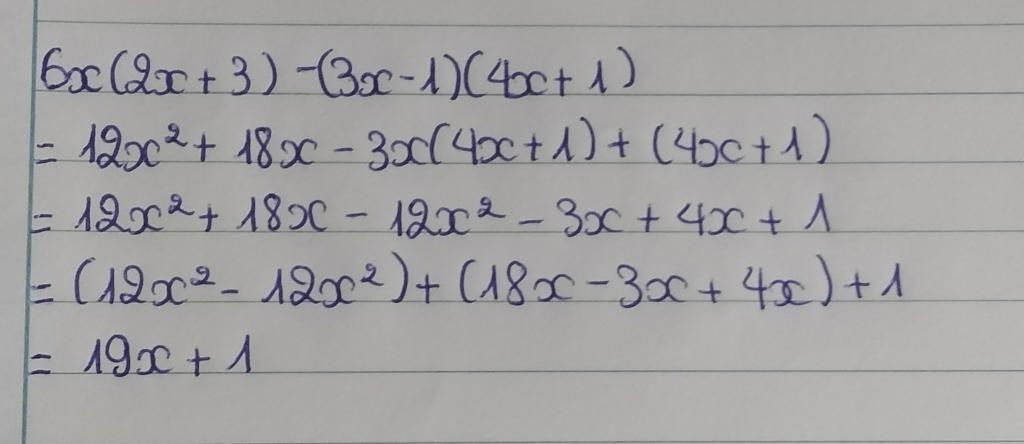 6x(2x+3) -(3x-1)(4x+1)
= 12x² + 18x - 3x(4x+1) + (4x+1)
= 12x² + 18x - 12x² - 3x + 4x + 1
= (12x² - 12x²) + (18x - 3x + 4x) + 1
= 19x + 1